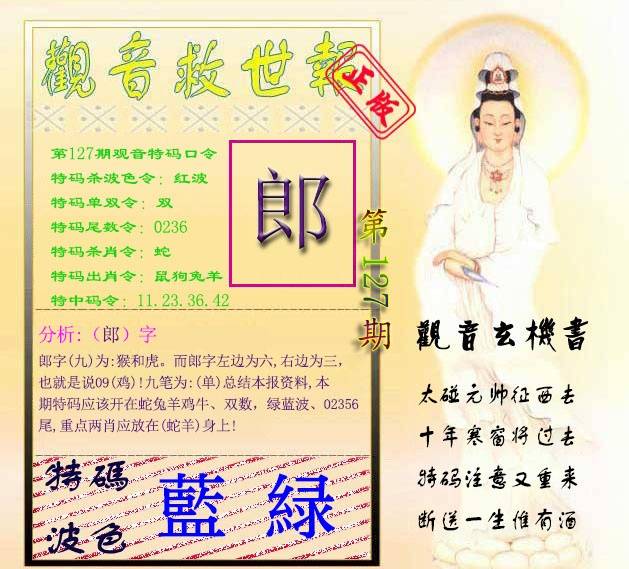 觀音救世報
正版
第127期观音特码口令
特码杀波色令：红波
特码单双令：双
特码尾数令：0236
特码杀肖令：蛇
特码出肖令：鼠狗兔羊
特中码令：11.23.36.42
郎
第127期
分析:（郎）字
郎字(九)为:猴和虎。而郎字左边为六,右边为三，
也就是说09(鸡)!九笔为:(单)总结本报资料,本
期特码应该开在蛇兔羊鸡牛、双数，绿蓝波、02356
尾,重点两肖应放在(蛇羊)身上!
特碼
波色
藍綠
觀音玄機書
太碰元帅征西去
十年寒窗将过去
特码注意又重来
断送一生惟有酒